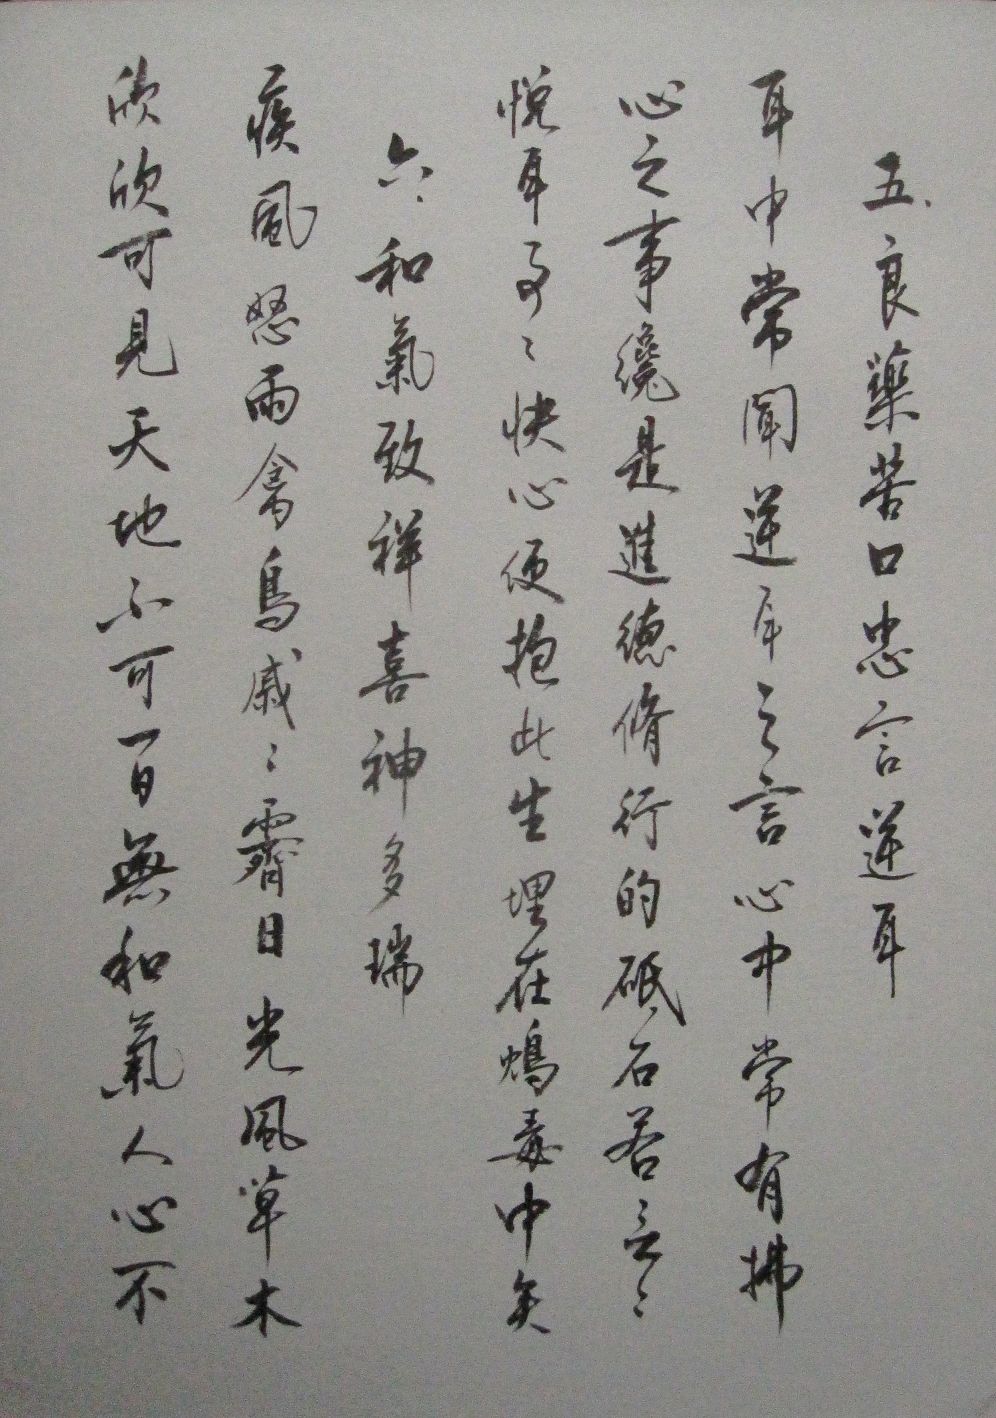 五、良藥苦口忠言逆耳
耳中常聞逆耳之言心中常有拂
心之事纔是進德修行的砥石若言〻
悅耳事〻快心便抱此生埋在鴆毒中矣
六、和氣致祥喜神多瑞
疾風怒雨禽鳥戚〻霽日光風草木
欣欣可見天地不可一日無和氣人心不